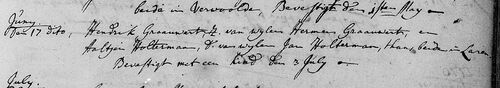 beide in Vervoolde, Bevestigt den 1sten May
Juny
Den 17 dito, Hendrik Graauwert, Z. van wylen Hermen Graauwert, en
Aaltjen Holterman, Dr. van wylen Jan Holterman, thans beide in Laren
Bevestigt met een Kind den 3 July
July.